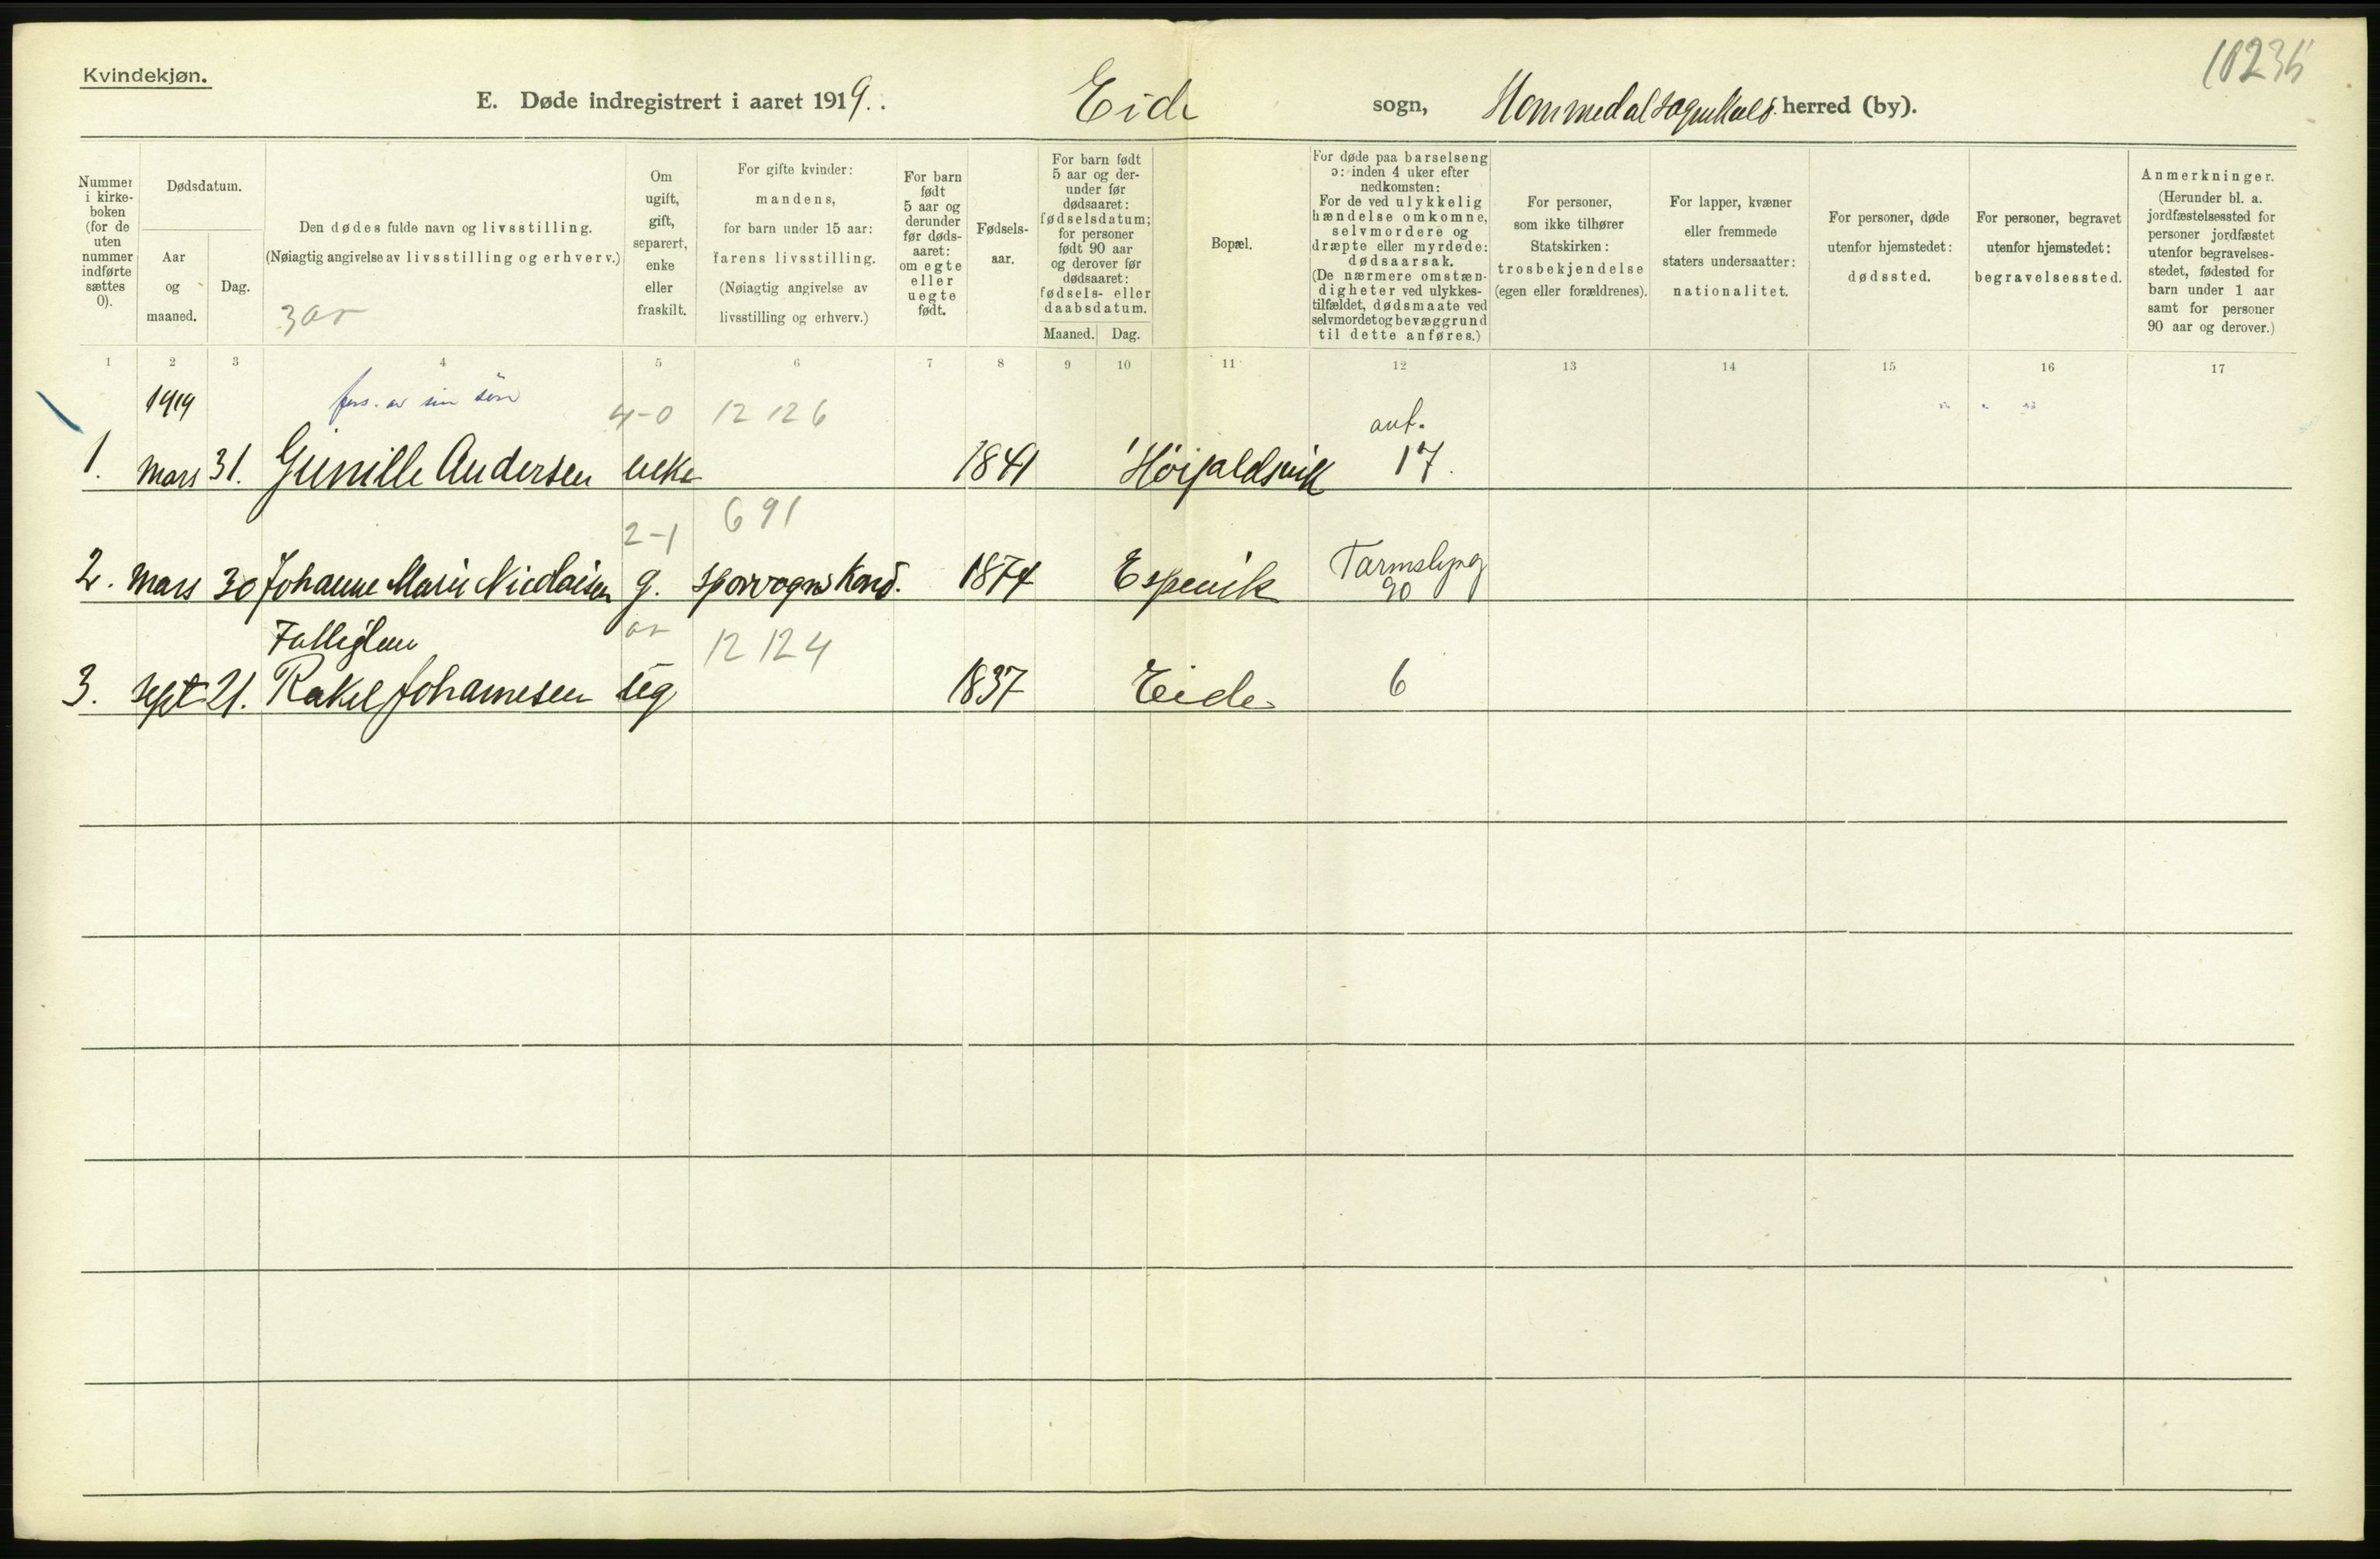 Kvindekjøn.
E. Døde indregistrert i aaret 1919. Eide sogn, Hommedal herred (by).
Nummer i kirkeboken (for de uten nummer indførte sættes 0).
Dødsdatum.
Aar og maaned.
Dag.
Den dødes fulde navn og livsstilling.
(Nøiagtig angivelse av livsstilling og erhverv.)
Om ugift, gift, separert, enke eller fraskilt.
For gifte kvinder: mandens, for barn under 15 aar: farens livsstilling. (Nøiagtig angivelse av livsstilling og erhverv.)
For barn født 5 aar og derunder før dødsaaret: om egte eller uegte født.
Fødselsaar.
For barn født 5 aar og derunder før dødsaaret: fødselsdatum; for personer født 90 aar og derover før dødsaaret: fødsels- eller daabsdatum.
Maaned. Dag.
Bopæl.
For døde paa barselseng ɔ: inden 4 uker efter nedkomsten: For de ved ulykkelig hændelse omkomne, selvmordere og dræpte eller myrdede: dødsaarsak. (De nærmere omstændigheter ved ulykkestilfældet, dødsmaate ved selvmordet og bevæggrund til dette anføres.)
For personer, som ikke tilhører Statskirken: trosbekjendelse (egen eller forældrenes).
For lapper, kvæner eller fremmede staters undersaatter: nationalitet.
For personer, døde utenfor hjemstedet: dødssted.
For personer, begravet utenfor hjemstedet: begravelsessted.
Anmerkninger. (Herunder bl. a. jordfæstelsessted for personer jordfæstet utenfor begravelsesstedet, fødested for barn under 1 aar samt for personer 90 aar og derover.)
1 2 3 4 5 6 7 8 9 10 11 12 13 14 15 16 17
1919 fors. av sin søn 4-0 12 126 ant.
1. Mars 31. Gunille Andersen enke 1841 17.
2-1 691
2. Mars 30 Johanne Marie Nicolaisen g. sporvognskond. 1874 Espevik Tarmslyng 90
12 124
3. Sept. 21. Rakel Johannesen ug 1837 Eide 6